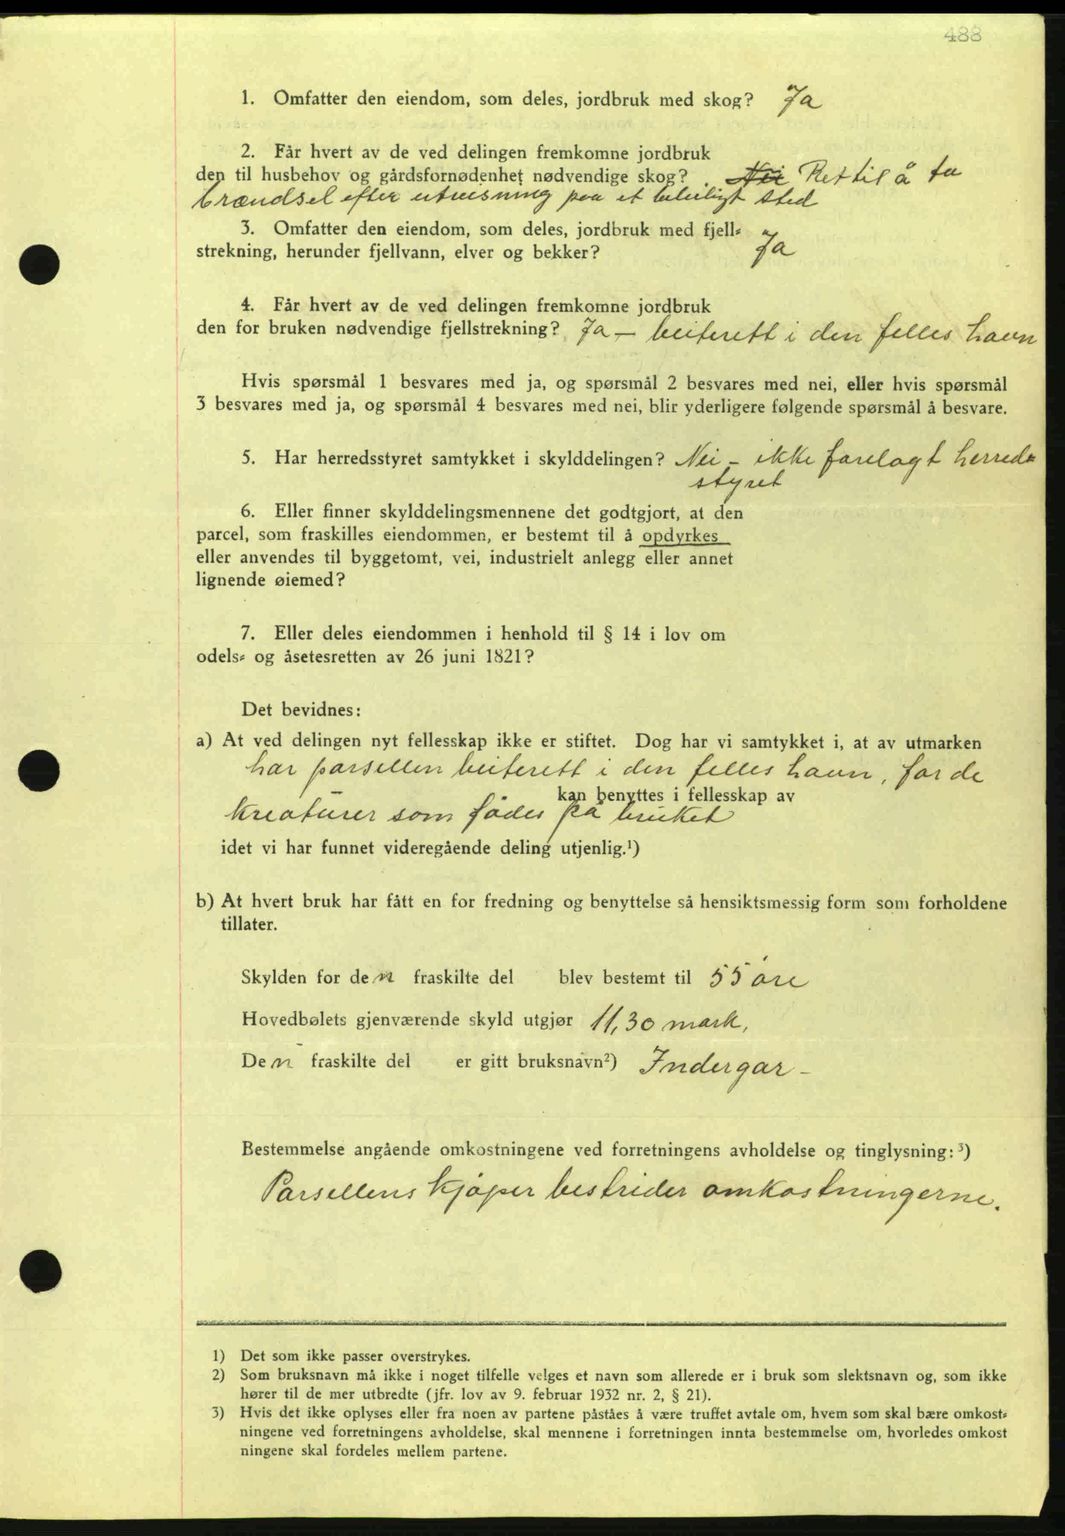 488
1. Omfatter den eiendom, som deles, jordbruk med skog? Ja
2. Får hvert av de ved delingen fremkomne jordbruk
den til husbehov og gårdsfornødenhet nødvendige skog? Nei Ret til å ta
brændsel efter utvisning paa et beleiligt sted
3. Omfatter den eiendom, som deles, jordbruk med fjell-
strekning, herunder fjellvann, elver og bekker? Ja
4. Får hvert av de ved delingen fremkomne jordbruk
den for bruken nødvendige fjellstrekning? Ja — beiterett i den felles havn
Hvis spørsmål 1 besvares med ja, og spørsmål 2 besvares med nei, eller hvis spørsmål
3 besvares med ja, og spørsmål 4 besvares med nei, blir yderligere følgende spørsmål å besvare.
5. Har herredsstyret samtykket i skylddelingen? Nei - ikke forelagt herred-
styret
6. Eller finner skylddelingsmennene det godtgjort, at den
parcel, som fraskilles eiendommen, er bestemt til å opdyrkes
eller anvendes til byggetomt, vei, industrielt anlegg eller annet
lignende øiemed?
7. Eller deles eiendommen i henhold til § 14 i lov om
odels- og åsetesretten av 26 juni 1821?
Det bevidnes:
a) At ved delingen nyt fellesskap ikke er stiftet. Dog har vi samtykket i, at av utmarken
har parsellen beiterett i den felles havn, for de
kan benyttes i fellesskap av
kreaturer som födes på bruket
idet vi har funnet videregående deling utjenlig.¹)
b) At hvert bruk har fått en for fredning og benyttelse så hensiktsmessig form som forholdene
tillater.
Skylden for den fraskilte del blev bestemt til 55 öre
Hovedbølets gjenværende skyld utgjør 11,30 mark,
Den fraskilte del er gitt bruksnavn²) Indergar -
Bestemmelse angående omkostningene ved forretningens avholdelse og tinglysning:³)
Parsellens kjöper bestrider omkostningerne.
1) Det som ikke passer overstrykes.
2) Som bruksnavn må ikke i noget tilfelle velges et navn som allerede er i bruk som slektsnavn og, som ikke
hører til de mer utbredte (jfr. lov av 9. februar 1932 nr. 2, § 21).
3) Hvis det ikke oplyses eller fra noen av partene påståes å være truffet avtale om, hvem som skal bære omkost-
ningene ved forretningens avholdelse, skal mennene i forretningen innta bestemmelse om, hvorledes omkost
ningene skal fordeles mellem partene.